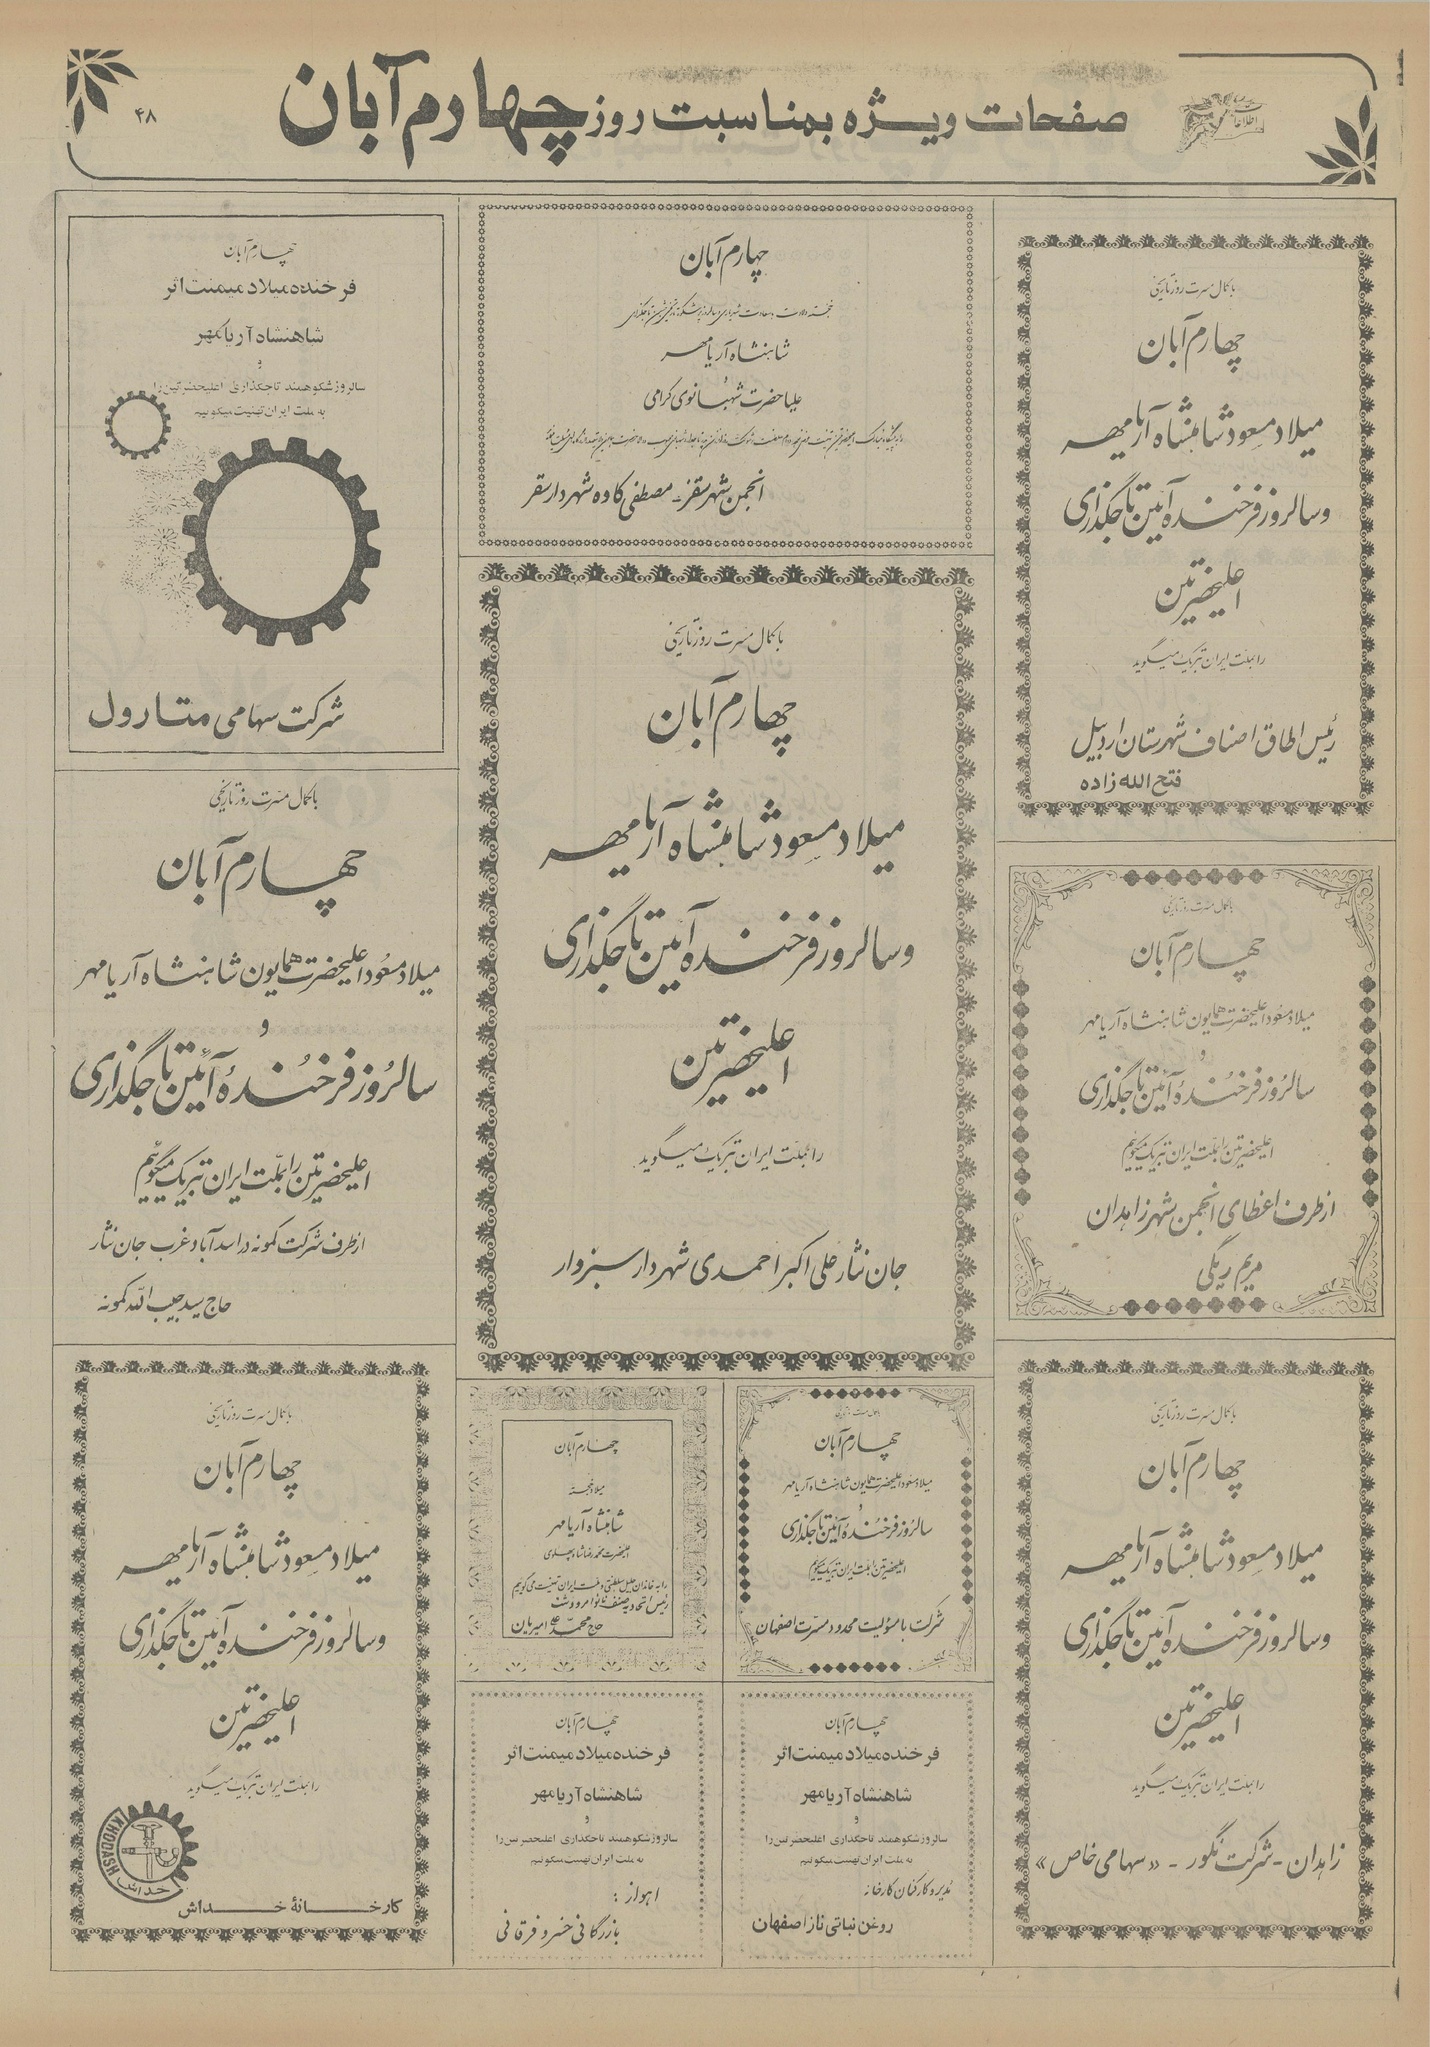 صفحات ویژه بمناسبت روز چهارم آبان
۴۸
اطلاعات
با کمال مسرت روز تاریخی
چهارم آبان
میلاد مسعود شاهنشاه آریامهر
و سالروز فرخنده آئین تاجگذاری
اعلیحضرتین
را بملت ایران تبریک میگوید
رئیس اطاق اصناف شهرستان اردبیل
فتح الله زاده
با کمال مسرت روز تاریخی
چهارم آبان
میلاد مسعود اعلیحضرت همایون شاهنشاه آریامهر
و
سالروز فرخنده آئین تاجگذاری
اعلیحضرتین را بملت ایران تبریک میگوئیم
از طرف اعضای انجمن شهر زاهدان
مریم ریگی
با کمال مسرت روز تاریخی
چهارم آبان
میلاد مسعود شاهنشاه آریامهر
و سالروز فرخنده آئین تاجگذاری
اعلیحضرتین
را بملت ایران تبریک میگوید
زاهدان - شرکت نگور - «سهامی خاص»
چهارم آبان
شاهنشاه آریامهر
و
علیاحضرت شهبانوی گرامی
انجمن شهر سقز - مصطفی کاوه شهردار سقز
با کمال مسرت روز تاریخی
چهارم آبان
میلاد مسعود شاهنشاه آریامهر
و سالروز فرخنده آئین تاجگذاری
اعلیحضرتین
را بملت ایران تبریک میگوید
جان نثار علی اکبر احمدی شهردار سبزوار
با کمال مسرت روز تاریخی
چهارم آبان
میلاد مسعود اعلیحضرت همایون شاهنشاه آریامهر
و
سالروز فرخنده آئین تاجگذاری
اعلیحضرتین را بملت ایران تبریک میگوئیم
شرکت با مسؤلیت محدود مسرت اصفهان
چهارم آبان
میلاد خجسته
شاهنشاه آریامهر
اعلیحضرت محمدرضا شاه پهلوی
را به خاندان جلیل سلطنتی و ملت ایران تهنیت می گوئیم
رئیس اتحادیه صنف
حاج محمد امیریان
چهارم آبان
فرخنده میلاد میمنت اثر
شاهنشاه آریامهر
و
سالروز شکوهمند تاجگذاری اعلیحضرتین را
به ملت ایران تهنیت میگوئیم
مدیر و کارکنان کارخانه
روغن نباتی ناز اصفهان
چهارم آبان
فرخنده میلاد میمنت اثر
شاهنشاه آریامهر
و
سالروز شکوهمند تاجگذاری اعلیحضرتین را
به ملت ایران تهنیت میگوئیم
اهواز :
بازرگانی خسرو فرقانی
چهارم آبان
فرخنده میلاد میمنت اثر
شاهنشاه آریامهر
و
سالروز شکوهمند تاجگذاری اعلیحضرتین را
به ملت ایران تهنیت میگوئیم
شرکت سهامی متارول
با کمال مسرت روز تاریخی
چهارم آبان
میلاد مسعود اعلیحضرت همایون شاهنشاه آریامهر
و
سالروز فرخنده آئین تاجگذاری
اعلیحضرتین را بملت ایران تبریک میگوئیم
از طرف شرکت کمونه در اسدآباد و غرب جان نثار
حاج سید حبیب الله کمونه
با کمال مسرت روز تاریخی
چهارم آبان
میلاد مسعود شاهنشاه آریامهر
و سالروز فرخنده آئین تاجگذاری
اعلیحضرتین
را بملت ایران تبریک میگوید
KHODASH
خداش
کارخانهٔ خداش